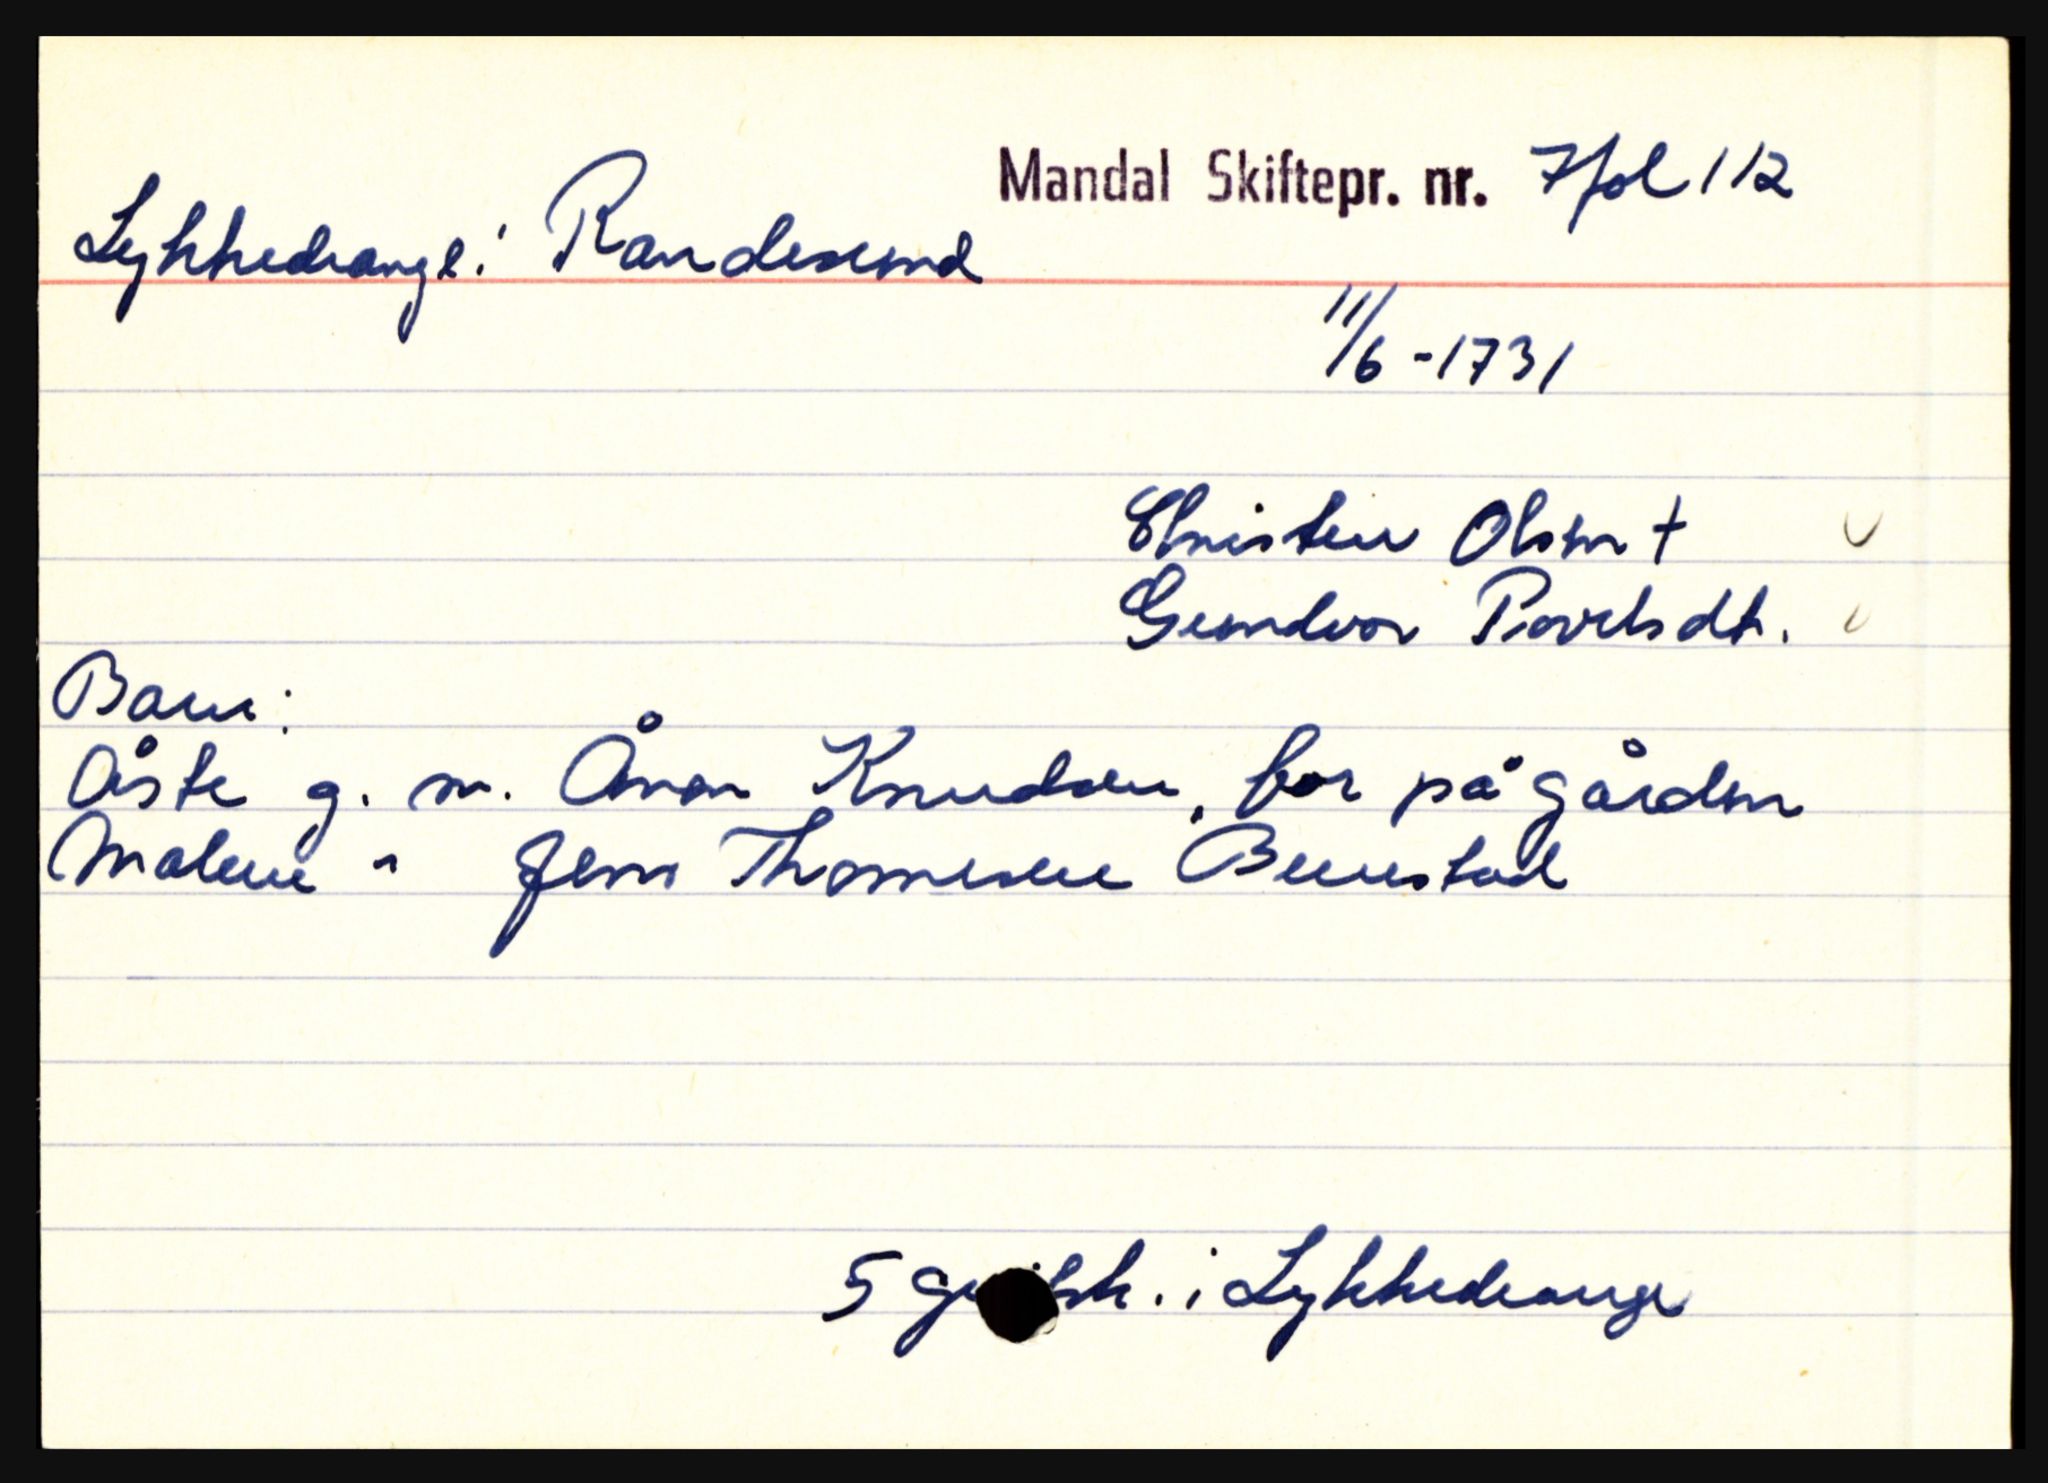 Mandal Skiftepr. nr. 7 fol 112
Lykkedrange i Randesund
11/6 - 1731
Christen Olsen +
Gundvor Povelsdt.
Barn:
Åste g. m. Ånon Knudsen, bor på gården
Malene " Jens Thomesen Benestad
5 i Lykkedrange